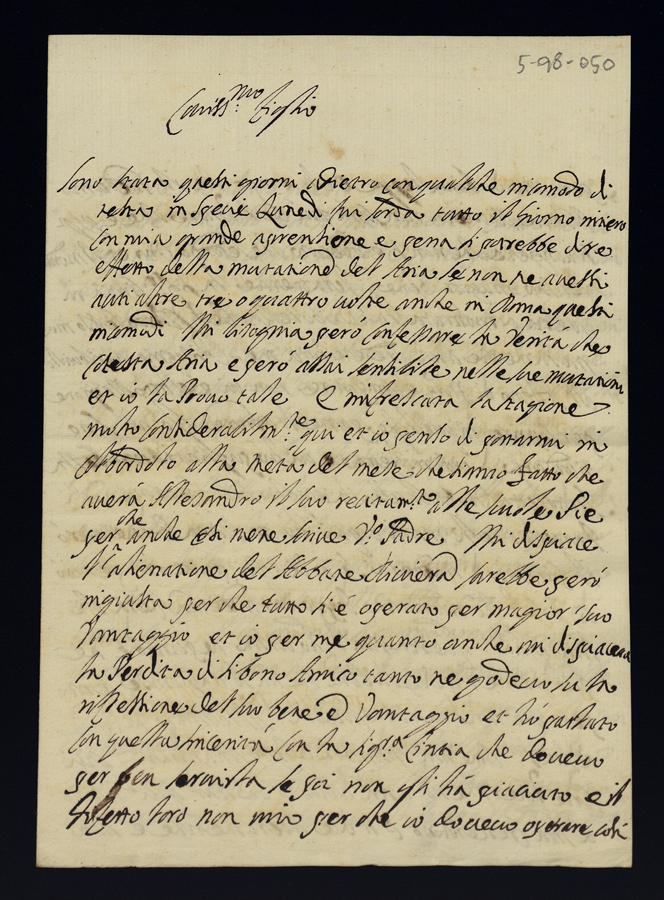 5-98-050
Cariss:mo Figlio
Sono stata questi giorni adietro con qualche incomodo di
testa in specie Lunedi fui sorda tutto il Giorno intiero
con mia grande aprensione e pena si potrebbe dire
effetto della mutatione del Aria se non ne avessi
auti altre tre o quattro volte anche in Roma questi
incomodi Mi bisogna però confessare la Verità che
cotesta Aria e però assai sensibile nelle sue mutationi
et io la Provo tale E rinfrescata la stagione
molto considerabilm.te qui et io penso di portarmi in
alla metà del mese che stimo fatto che
averà Alessandro il suo recitam.to alle scuole Sie
per che anche si ne scrive V.o Padre Mi dispiace
l'alienatione del Abbate Riviera sarebbe però
ingiusta perche tutto si è operato per magior suo
Vantaggio et io per me quanto anche mi dispiaceva
la Perdita di si bono Amico tanto ne godevo su la
riflessione del suo bene e Vantaggio et hò parlato
con quella sincerità con la Sig.ra Cintia che dovevo
per ben servirla se poi non gli hà piaciuto e il
difetto loro non mio per che io dovevo operare così